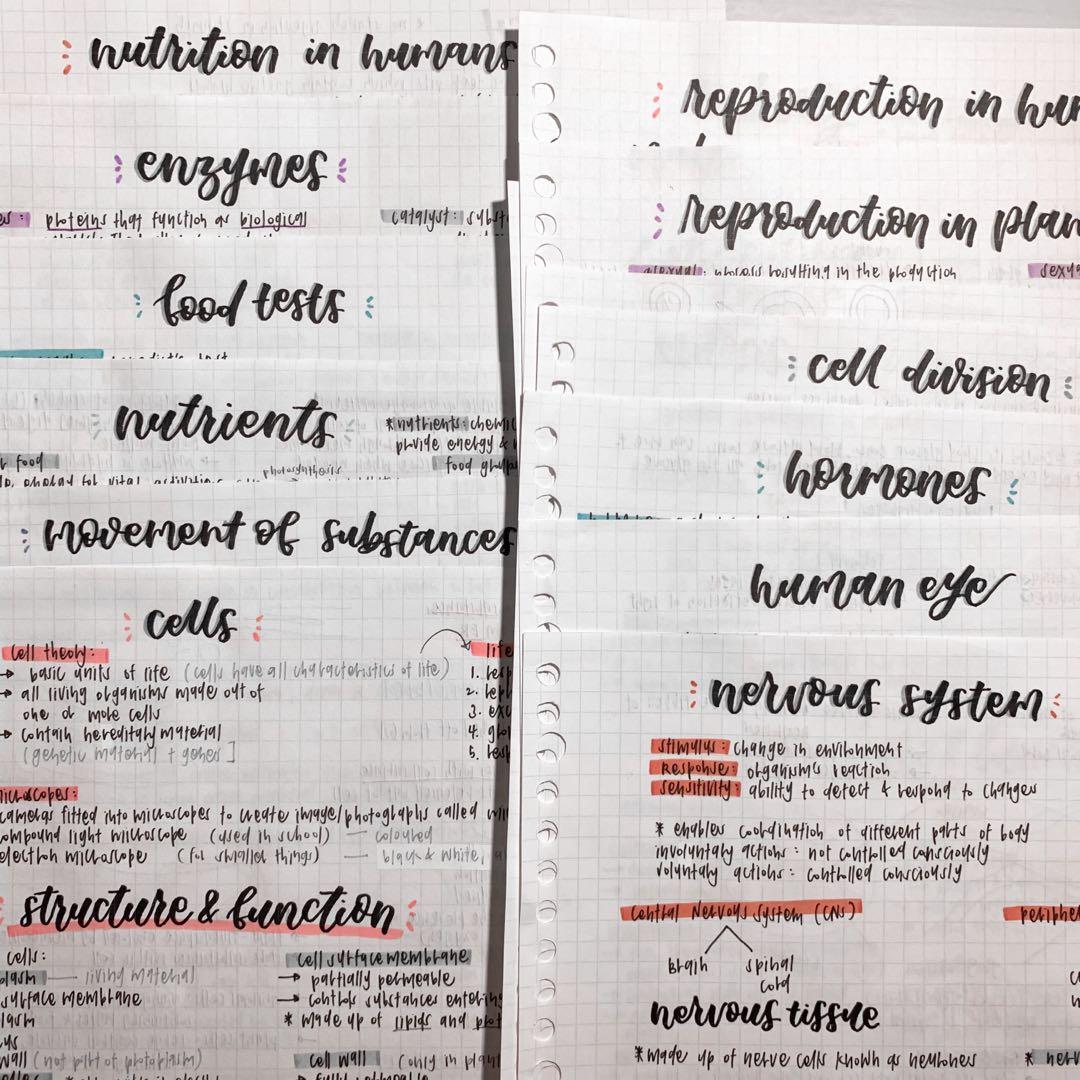 nutrition in humans
enzymes
proteins that function as biological
catalyst:
food tests
nutrients
*nutrients:
provide energy &
food
food
photosynthesis
for vital
movement of substances
cells
cell theory:
→ basic units of life (cells have all characteristics of life)
→ all living organisms made out of
one or more cells
→ contain hereditary material
(genetic material + genes]
life
1.
2.
3.
4.
5.
microscopes:
cameras fitted into microscopes to create image/photographs called
compound light microscope (used in school) — coloured
electron microscope (for smaller things) — black & white,
structure & function
cells:
living material
surface membrane
wall (not part of protoplasm)
cell surface membrane
→ partially permeable
→ controls substances entering
* made up of lipids and
cell wall (only in
reproduction in
reproduction in
asexual: process resulting in the production
cell division
hormones
human eye
nervous system
stimulus: change in environment
response: organism's reaction
sensitivity: ability to detect & respond to changes
* enables coordination of different parts of body
involuntary actions: not controlled consciously
voluntary actions: controlled consciously
central nervous system (CNS)
brain spinal
cord
nervous tissue
*made up of nerve cells known as neurones